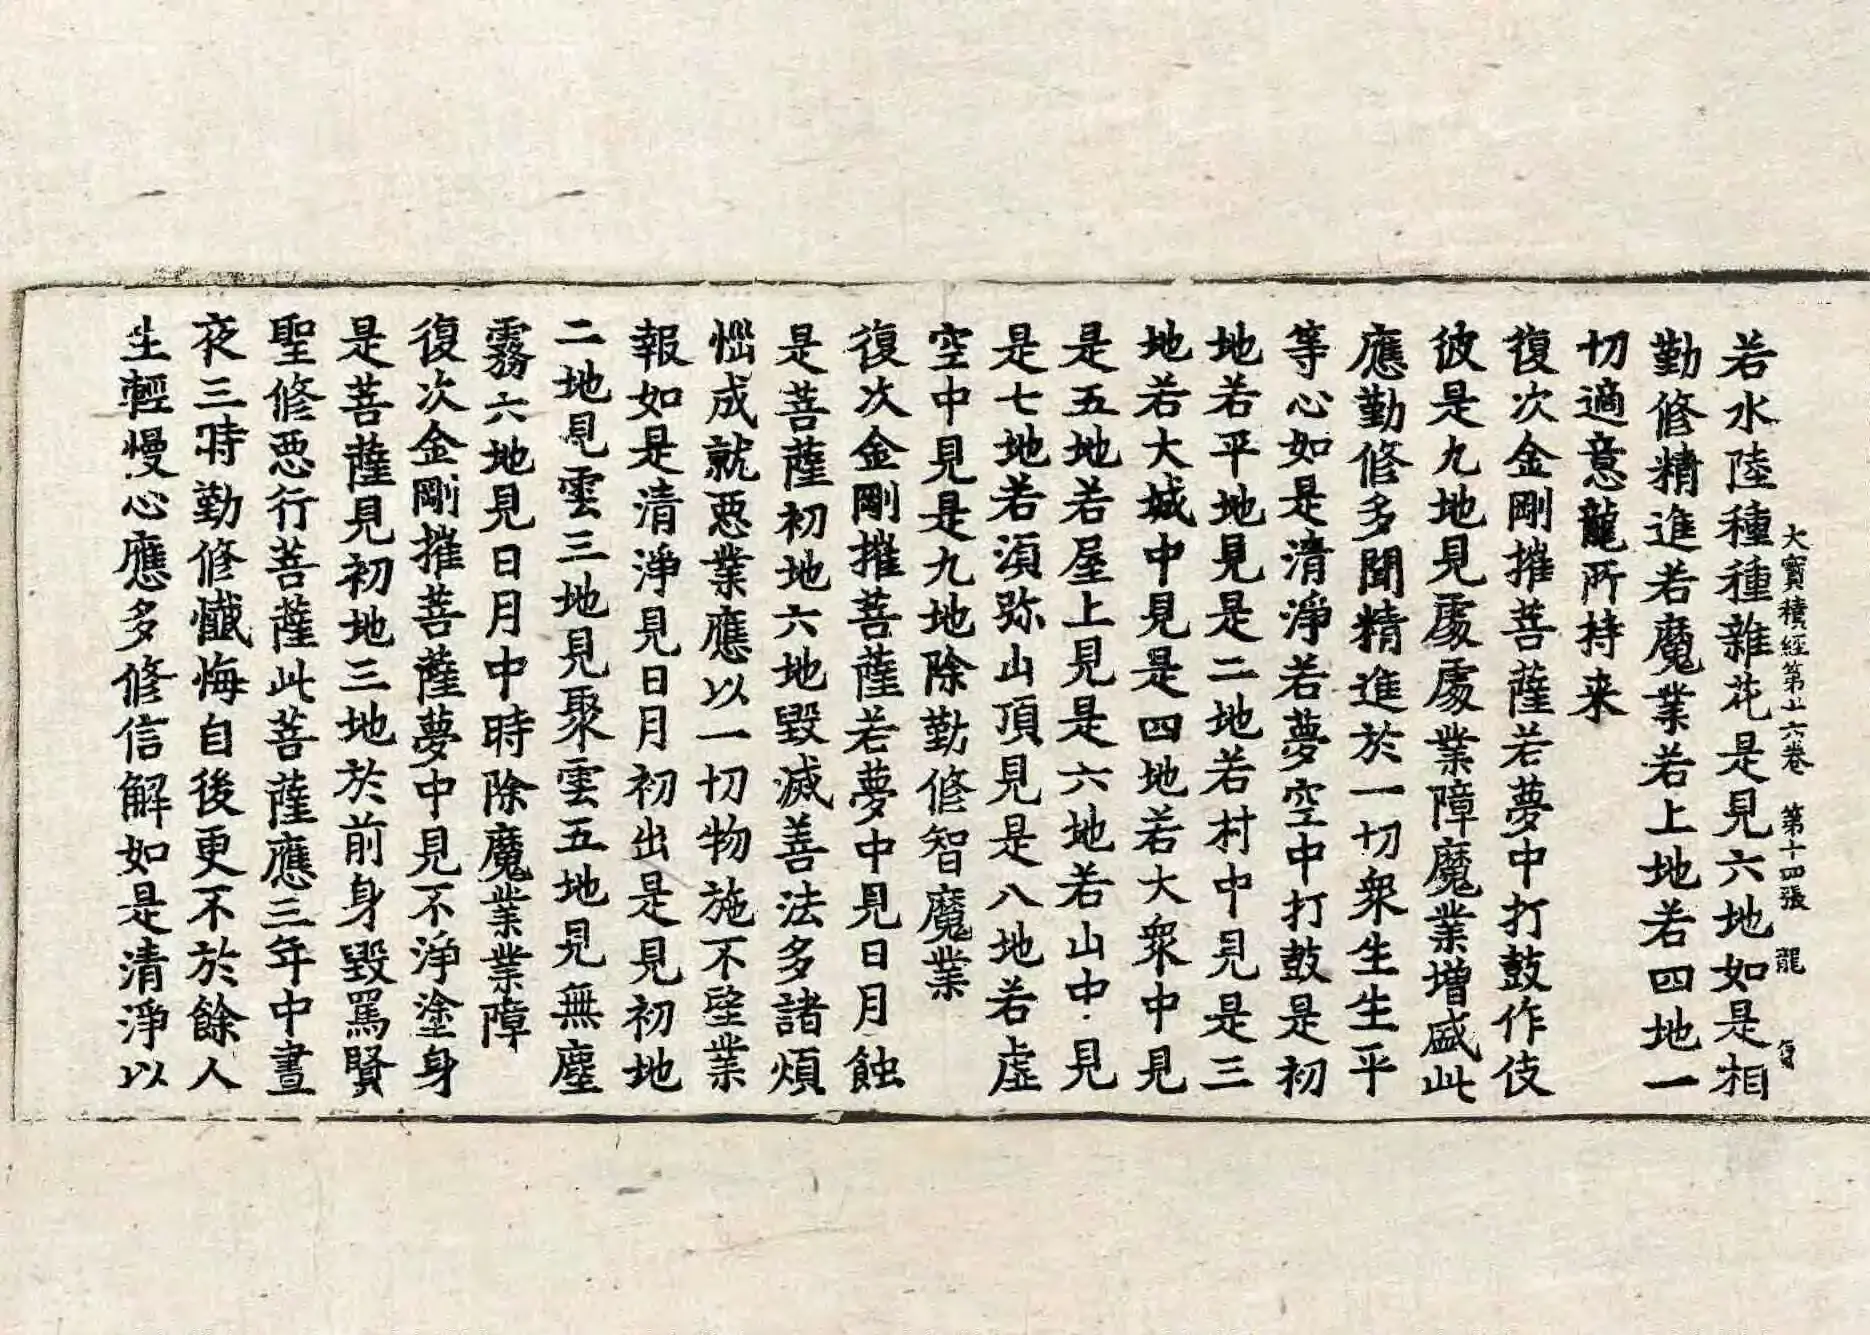 大寶積經第十六卷　第十四張　龍
若水陸種種雜花是見六地如是相
勤修精進若魔業若上地若四地一
切適意龍所持来
復次金剛摧菩薩若夢中打鼓作伎
彼是九地見處處業障魔業增盛此
應勤修多聞精進於一切衆生生平
等心如是清淨若夢空中打鼓是初
地若平地見是二地若村中見是三
地若大城中見是四地若大衆中見
是五地若屋上見是六地若山中見
是七地若湏弥山頂見是八地若虛
空中見是九地除勤修智魔業
復次金剛摧菩薩若夢中見日月蝕
是菩薩初地六地毀滅善法多諸煩
惱成就悪業應以一切物施不望業
報如是清淨見日月初出是見初地
二地見雲三地見聚雲五地見無塵
霧六地見日月中時除魔業業障
復次金剛摧菩薩夢中見不淨塗身
是菩薩見初地三地於前身毀罵賢
聖修悪行菩薩此菩薩應三年中晝
夜三時勤修懺悔自後更不於餘人
生輕慢心應多修信解如是清淨以